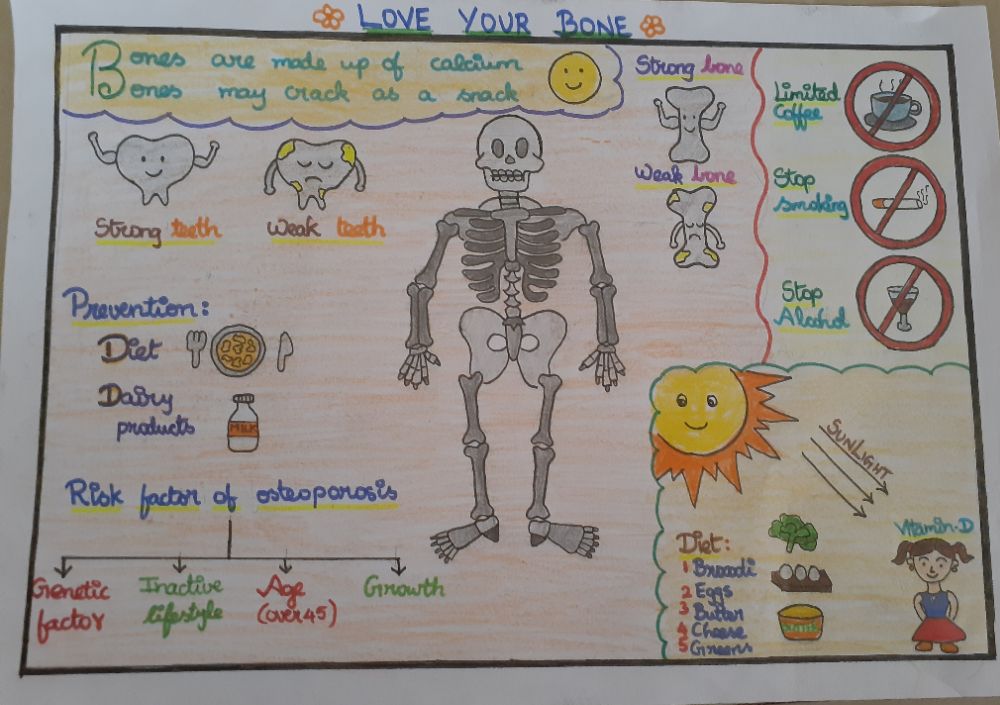 LOVE YOUR BONE
Bones are made up of calcium
Bones may crack as a snack
Strong teeth
Weak teeth
Strong bone
Weak bone
Limited
Coffee
Stop
smoking
Stop
Alcohol
Prevention:
Diet
Dairy
products
MILK
Risk factor of osteoporosis
Genetic
factor
Inactive
lifestyle
Age
(over 45)
Growth
SUNLIGHT
Vitamin-D
Diet:
1 Broccoli
2 Eggs
3 Butter
4 Cheese
5 Greens